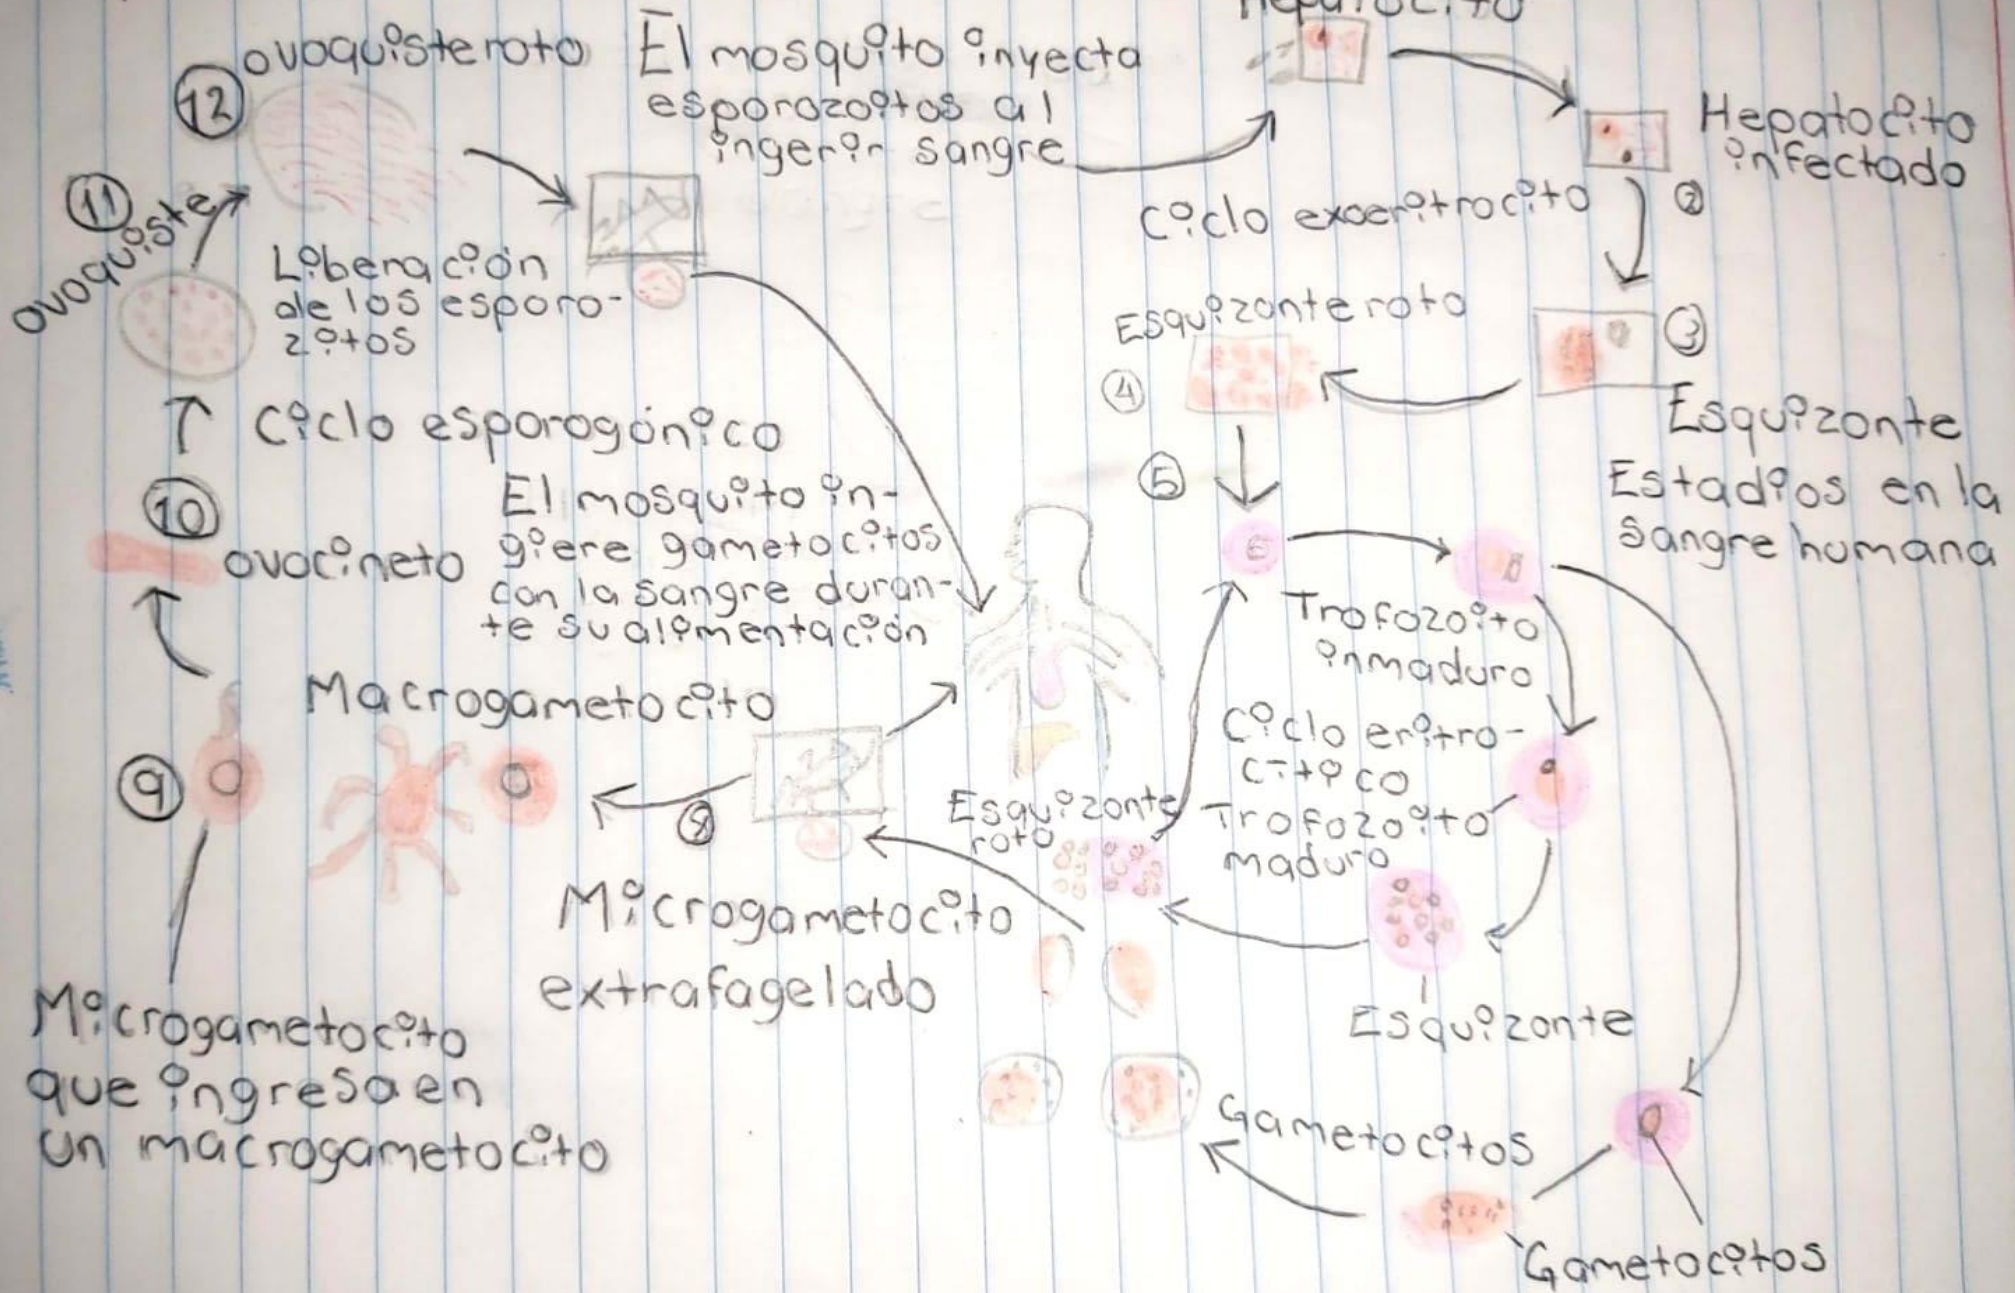 Hepatocito
12
ovoquiste roto
El mosquito inyecta
esporozoitos al
ingerir sangre
Hepatocito
infectado
2
Ciclo exoeritrocito
11
ovoquiste
Liberación
de los esporo-
zitos
Esquizonte roto
3
4
Esquizonte
Ciclo esporogónico
5
Estadios en la
sangre humana
10
ovocineto
El mosquito in-
giere gametocitos
con la sangre duran-
te su alimentación
Trofozoito
inmaduro
Macrogametocito
Ciclo eritro-
cítico
9
8
Esquizonte
roto
Trofozoito
maduro
Microgametocito
extrafagelado
Esquizonte
Microgametocito
que ingresa en
un macrogametocito
Gametocitos
Gametocitos